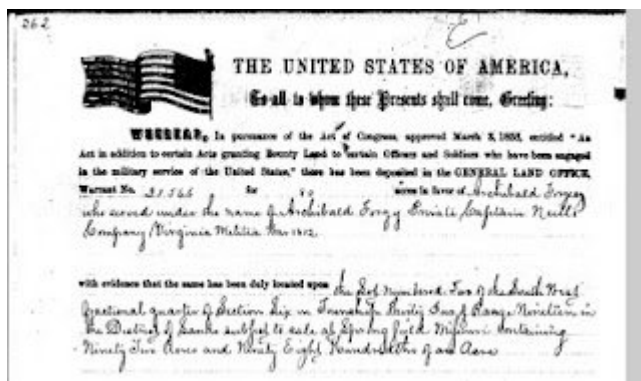 262
THE UNITED STATES OF AMERICA,
To all to whom these Presents shall come, Greeting:
WHEREAS, In pursuance of the Act of Congress, approved March 3, 1855, entitled "An
Act in addition to certain Acts granting Bounty Land to certain Officers and Soldiers who have been engaged
in the military service of the United States," there has been deposited in the GENERAL LAND OFFICE,
Warrant No. for acres in favor of Archibald
who served under the name of Archibald Forgy Private Captain
Company Virginia Militia War 1812
with evidence that the same has been duly located upon the Lot numbered Two of the South West
fractional quarter of Section Six in Township Thirty Two of Range Nineteen in
the District of Lands subject to sale at Springfield Missouri containing
Ninety Two Acres and Ninety Eight Hundredths of an Acre